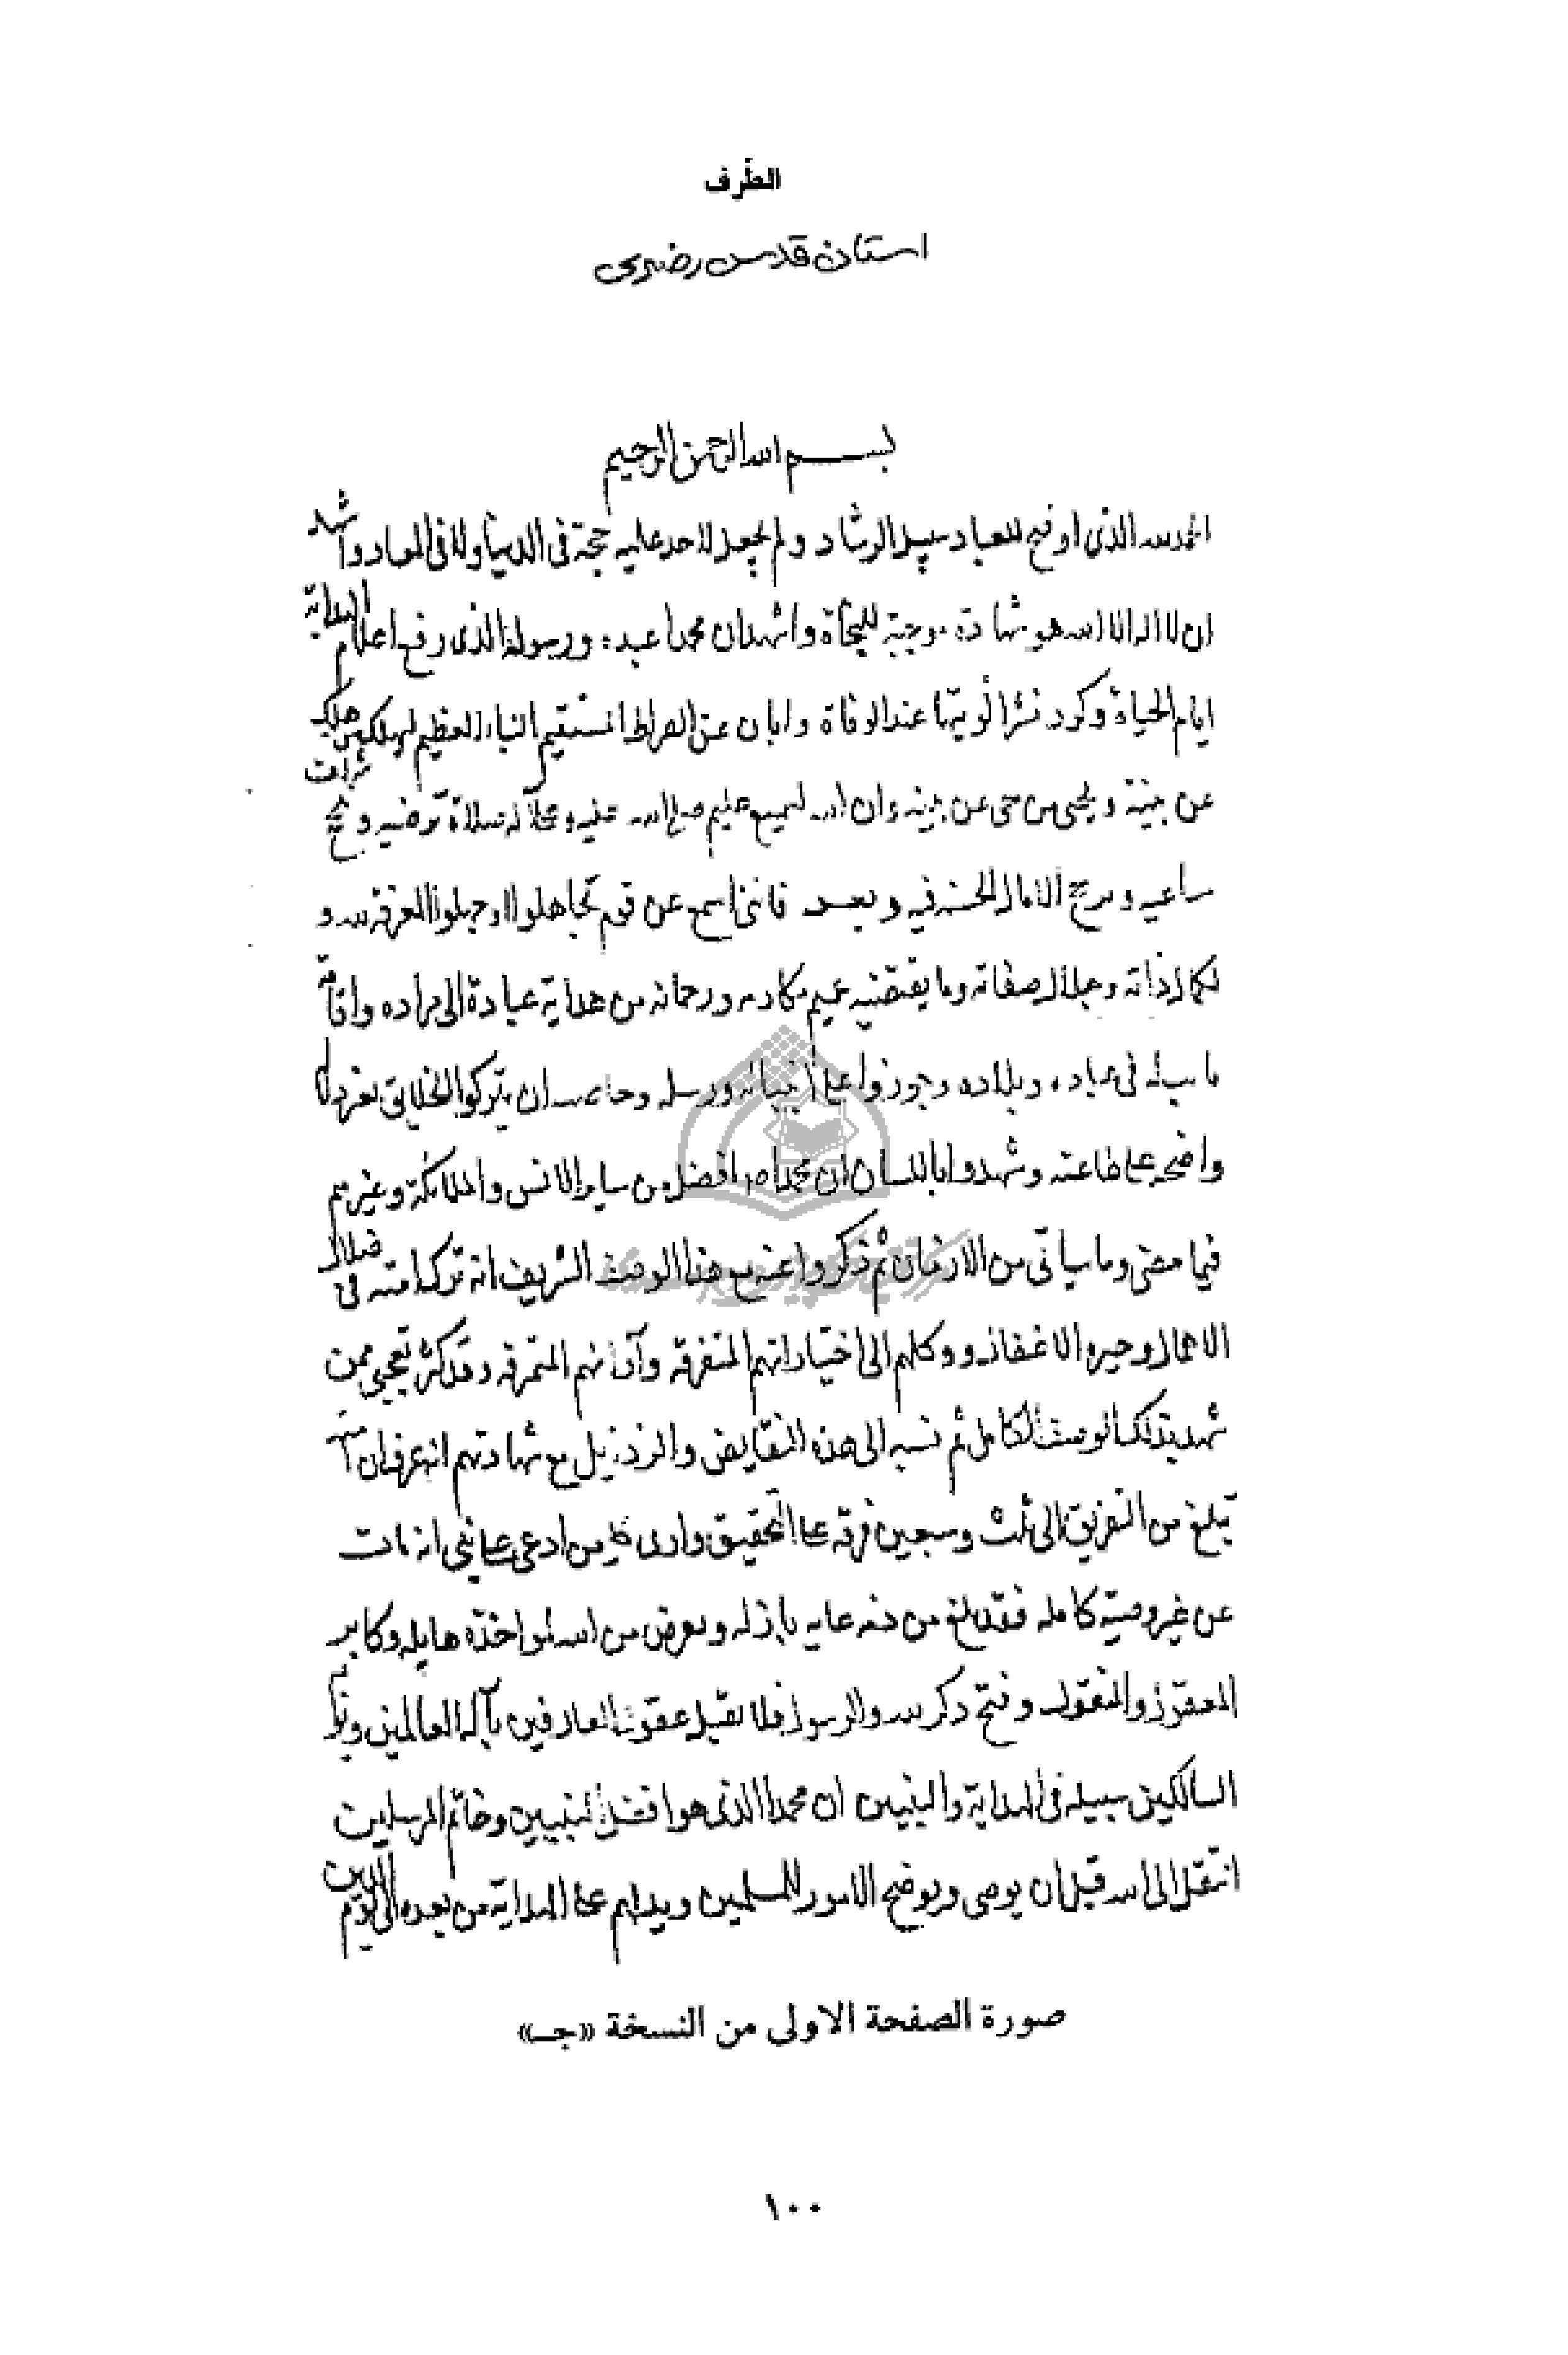 الطّرف
استان قدس رضوی
بسم الله الرحمن الرحيم
الحمد لله الذى اوضح للعباد سبيل الرشاد ولم يجعل لاحد عليه حجة فى الدنيا ولا فى المعاد واشهد
ان لا اله الا الله هو شهادة موجبة للنجاة واشهد ان محمدا عبده ورسوله الذى رفع اعلام الهداية
ايام الحياة وكرر نشر الويتها عند الوفاة وابان عن الصراط المستقيم النباء العظيم ليهلك من هلك
عن بينة ويحيى من حى عن بينه وان الله لسميع عليم صلى الله عليه وعلى آله صلاة ترضيه و
ساعيه و الامال الحسنة فيه وبعد فاننى اسمع عن قوم تجاهلوا او جهلوا المعرفة لله و
لكمال ذاته وجلال صفاته وما يقتضيه عميم مكارمه ورحماته من هداية عبادة الى مراده واقامة
نايب له فى عباده وبلاده وجوزوا على انبيائه ورسله وخاصته ان يتركوا الخلايق بغير دلا
واضحه على طاعته وشهدوا باللسان ان محمدا ص افضل من ساير الانس والملائكة وغيرهم
فيما مضى وما ياتى من الازمان ثم ذكروا عنه مع هذا الوصف الشريف انه ترك امته فى ضلال
الاهمال وحيرة الاغفال ووكلهم الى اختياراتهم المتفرقه وآرائهم المتمزقه وقد كثر تعجبى ممن
شهد بذلك الوصف الكامل ثم نسبه الى هذه النقايص والرذايل مع شهادتهم انه عرف ان امته
تبلغ من التفريق الى ثلث وسبعين فرقه على التحقيق وارى كل من ادعى على نبى انه مات
عن غير وصية كامله فقد بلغ من ذمه غايه نازله وتعرض من الله لمواخذة هايله وكابر
المعقول والمنقول وقبح ذكر الله والرسول فلا تقبل عقول العارفين باله العالمين و
السالكين سبيله فى الهداية والنبيين ان محمدا الذى هو افضل النبيين وخاتم المرسلين
انتقل الى الله قبل ان يوصى ويوضح الامور للمسلمين ويدلهم على الهداية من بعده الى يوم الدين
صورة الصفحة الاولى من النسخة «جـ»
١٠٠